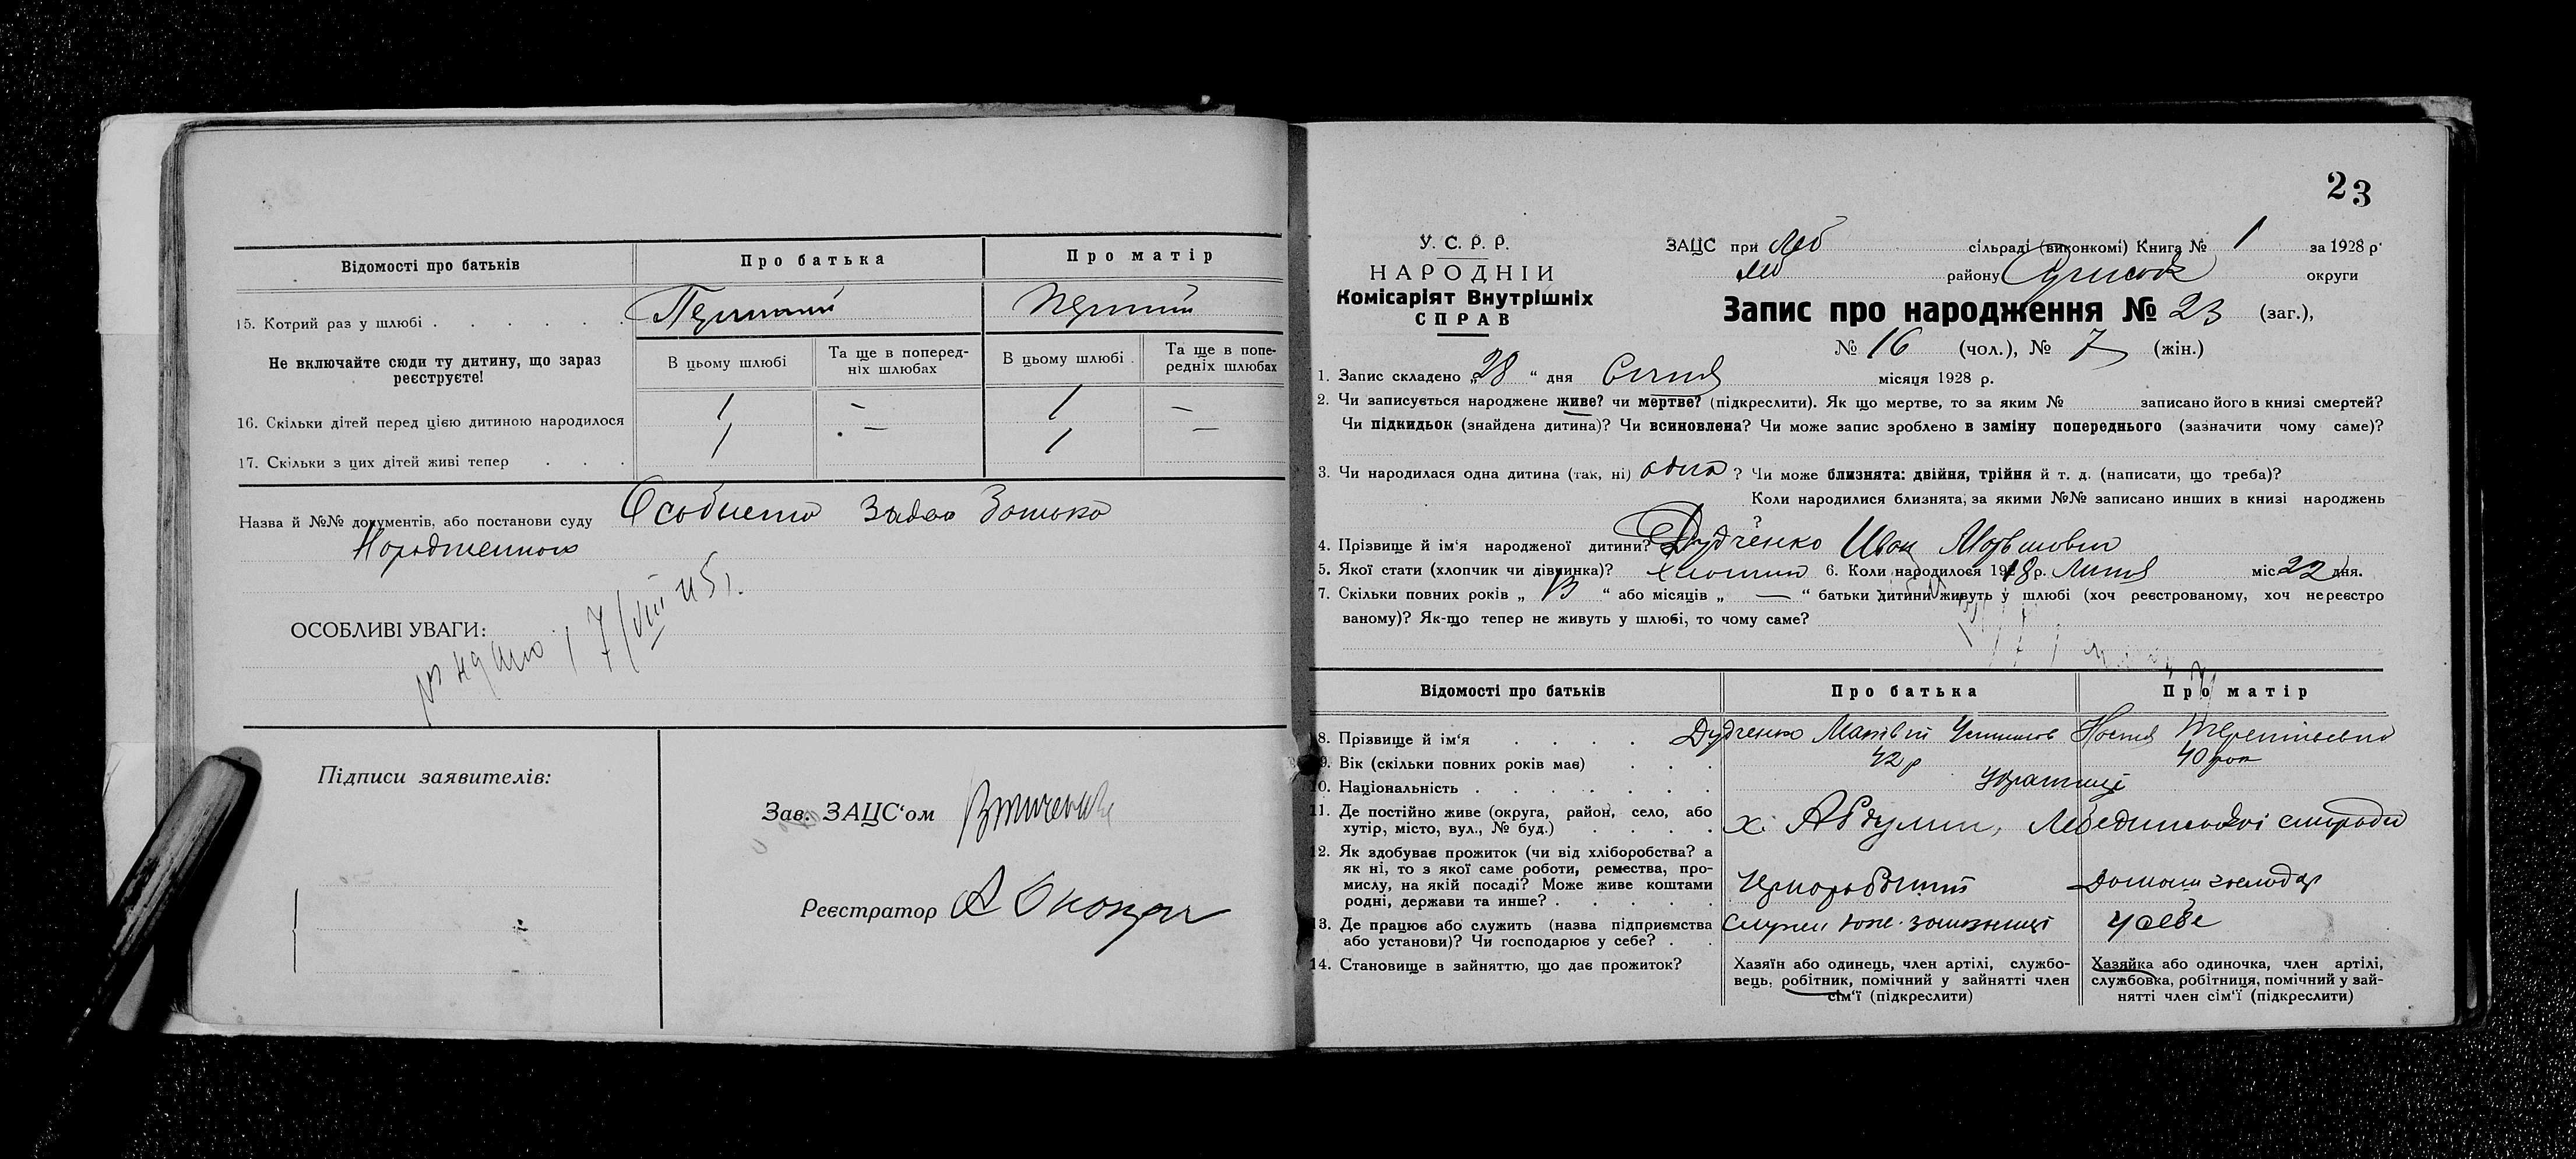 Відомості про батьків
Про батька
Про матір
15. Котрий раз у шлюбі
Перший
Перший
Не включайте сюди ту дитину, що зараз реєструєте!
В цьому шлюбі
Та ще в поперед-
ніх шлюбах
В цьому шлюбі
Та ще в попе-
редніх шлюбах
16. Скільки дітей перед цією дитиною народилося
1 — 1 —
17. Скільки з цих дітей живі тепер
1 — 1 —
Назва й №№ документів, або постанови суду Особиста заява батька
Народженного
ОСОБЛИВІ УВАГИ:
17/VIII 45 г.
Підписи заявителів:
Зав. ЗАЦС'ом
Реєстратор
23
У. С. Р. Р.
НАРОДНІЙ
Комісаріят Внутрішніх
СПРАВ
ЗАЦС при Леб сільраді (виконкомі) Книга № 1 за 1928 р.
Леб району Сумської округи
Запис про народження № 23 (заг.),
№ 16 (чол.), № 7 (жін.)
1. Запис складено „28“ дня Січня місяця 1928 р.
2. Чи записується народжене живе? чи мертве? (підкреслити). Як що мертве, то за яким № записано його в книзі смертей?
Чи підкидьок (знайдена дитина)? Чи всиновлена? Чи може запис зроблено в заміну попереднього (зазначити чому саме)?
3. Чи народилася одна дитина (так, ні) одна ? Чи може близнята: двійня, трійня й т. д. (написати, що треба)?
Коли народилися близнята, за якими №№ записано инших в книзі народжень
?
4. Прізвище й ім'я народженої дитини? Дудченко Иван Матвійович
5. Якої стати (хлопчик чи дівчинка)? хлопчик 6. Коли народилося 1918 р. Липня міс 22 дня.
7. Скільки повних років „13“ або місяців „—“ батьки дитини живуть у шлюбі (хоч реєстрованому, хоч нереєстро
ваному)? Як-що тепер не живуть у шлюбі, то чому саме?
Відомості про батьків
Про батька
Про матір
8. Прізвище й ім'я
Дудченко Матвій Устимов
Настя Терентіевна
9. Вік (скільки повних років має)
42 р
40 рок
10. Національність
Українці
11. Де постійно живе (округа, район, село, або
хутір, місто, вул., № буд.)
х. Авдулин, Лебединської сільради
12. Як здобуває прожиток (чи від хліборобства? а
як ні, то з якої саме роботи, ремества, про-
мислу, на якій посаді? Може живе коштами
родні, держави та инше?
Чернороб
Домашн господар
13. Де працює або служить (назва підприємства
або установи)? Чи господарює у себе?
у себе
14. Становище в зайняттю, що дає прожиток?
Хазяїн або одинець, член артілі, службо-
вець, робітник, помічний у зайнятті член
сім'ї (підкреслити)
Хазяйка або одиночка, член артілі,
службовка, робітниця, помічний у зай-
нятті член сім'ї (підкреслити)